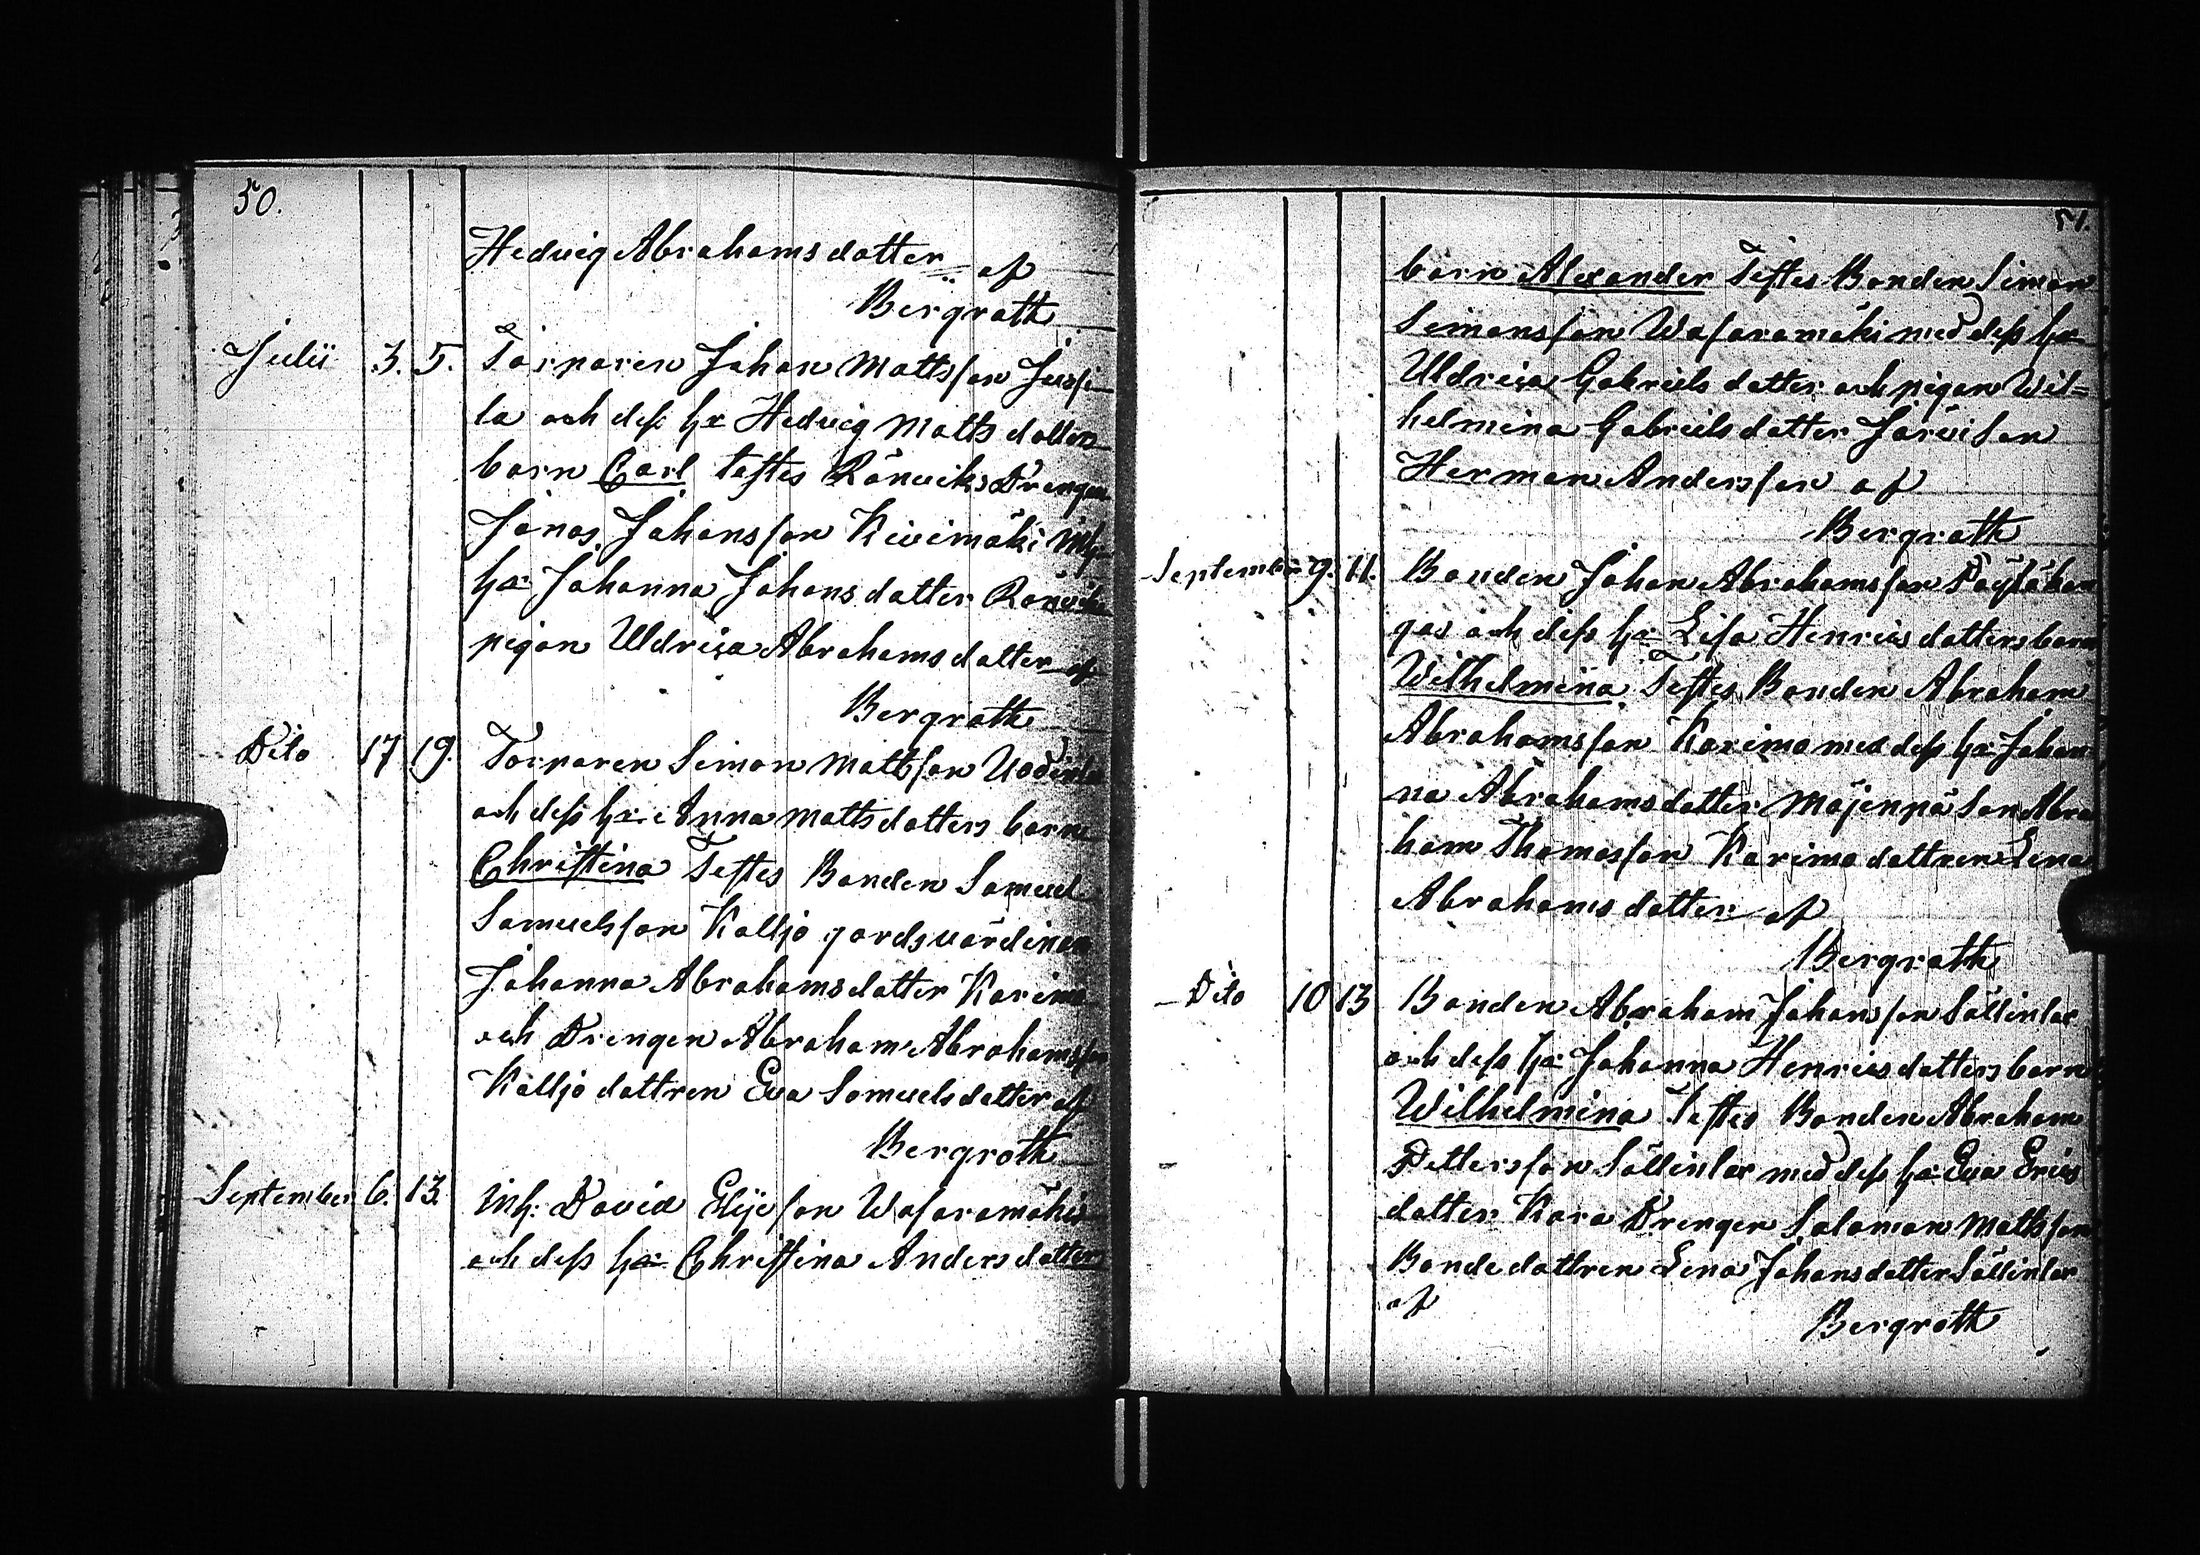 50.
Hedvig Abrahamsdotter af
Bergroth
Julii 3. 5. Torparen Johan Mattsson Jussi
la och dess h:u Hedvig Mattsdotters
barn Carl testes Rönviks Drengen
Jonas Johansson Kivimäki Inh:
h:u Johanna Johansdotter Rönvik
pigan Uldrica Abrahamsdotter af
Bergroth
Dito 17 19. Torparen Simon Mattsson
och dess h:u Anna Mattsdotters barn
Christina Testes Bonden Samuel
Samuelsson Kalljo gårdsvärdinan
Johanna Abrahamsdotter Karima
och Drengen Abraham Abrahamsson
Kalljo dottren Eva Samuelsdotter af
Bergroth
September 6. 13. Inh: David Elijesson Wasaramäki
och dess h:u Christina Andersdotters
51.
barn Alexander Testes Bonden Simon
Simonsson Wasaramäki med dess h:u
Uldrica Gabrielsdotter och pigan Wil=
helmina Gabrielsdotter Järvi Son
Herman Andersson af
Bergroth
September 9. 11. Bonden Johan Abrahamsson
gas och dess h:u Lisa Henricsdotters barn
Wilhelmina Testes Bonden Abraham
Abrahamsson Karima med dess h:u Johan
na Abrahamsdotter Mäjenpä Son Abra
ham Thomasson Karima dottren Lena
Abrahams dotter af
Bergroth
Dito 10 13 Bonden Abraham Johansson Sällinlax
och dess h:u Johanna Henricsdotters barn
Wilhelmina Testes Bonden Abraham
Pettersson Sällinlax med dess h:u Eva Erics
dotter Kara Drengen Salomon Mattsson
Bondedottren Lena Johansdotter Sällinlax
af
Bergroth